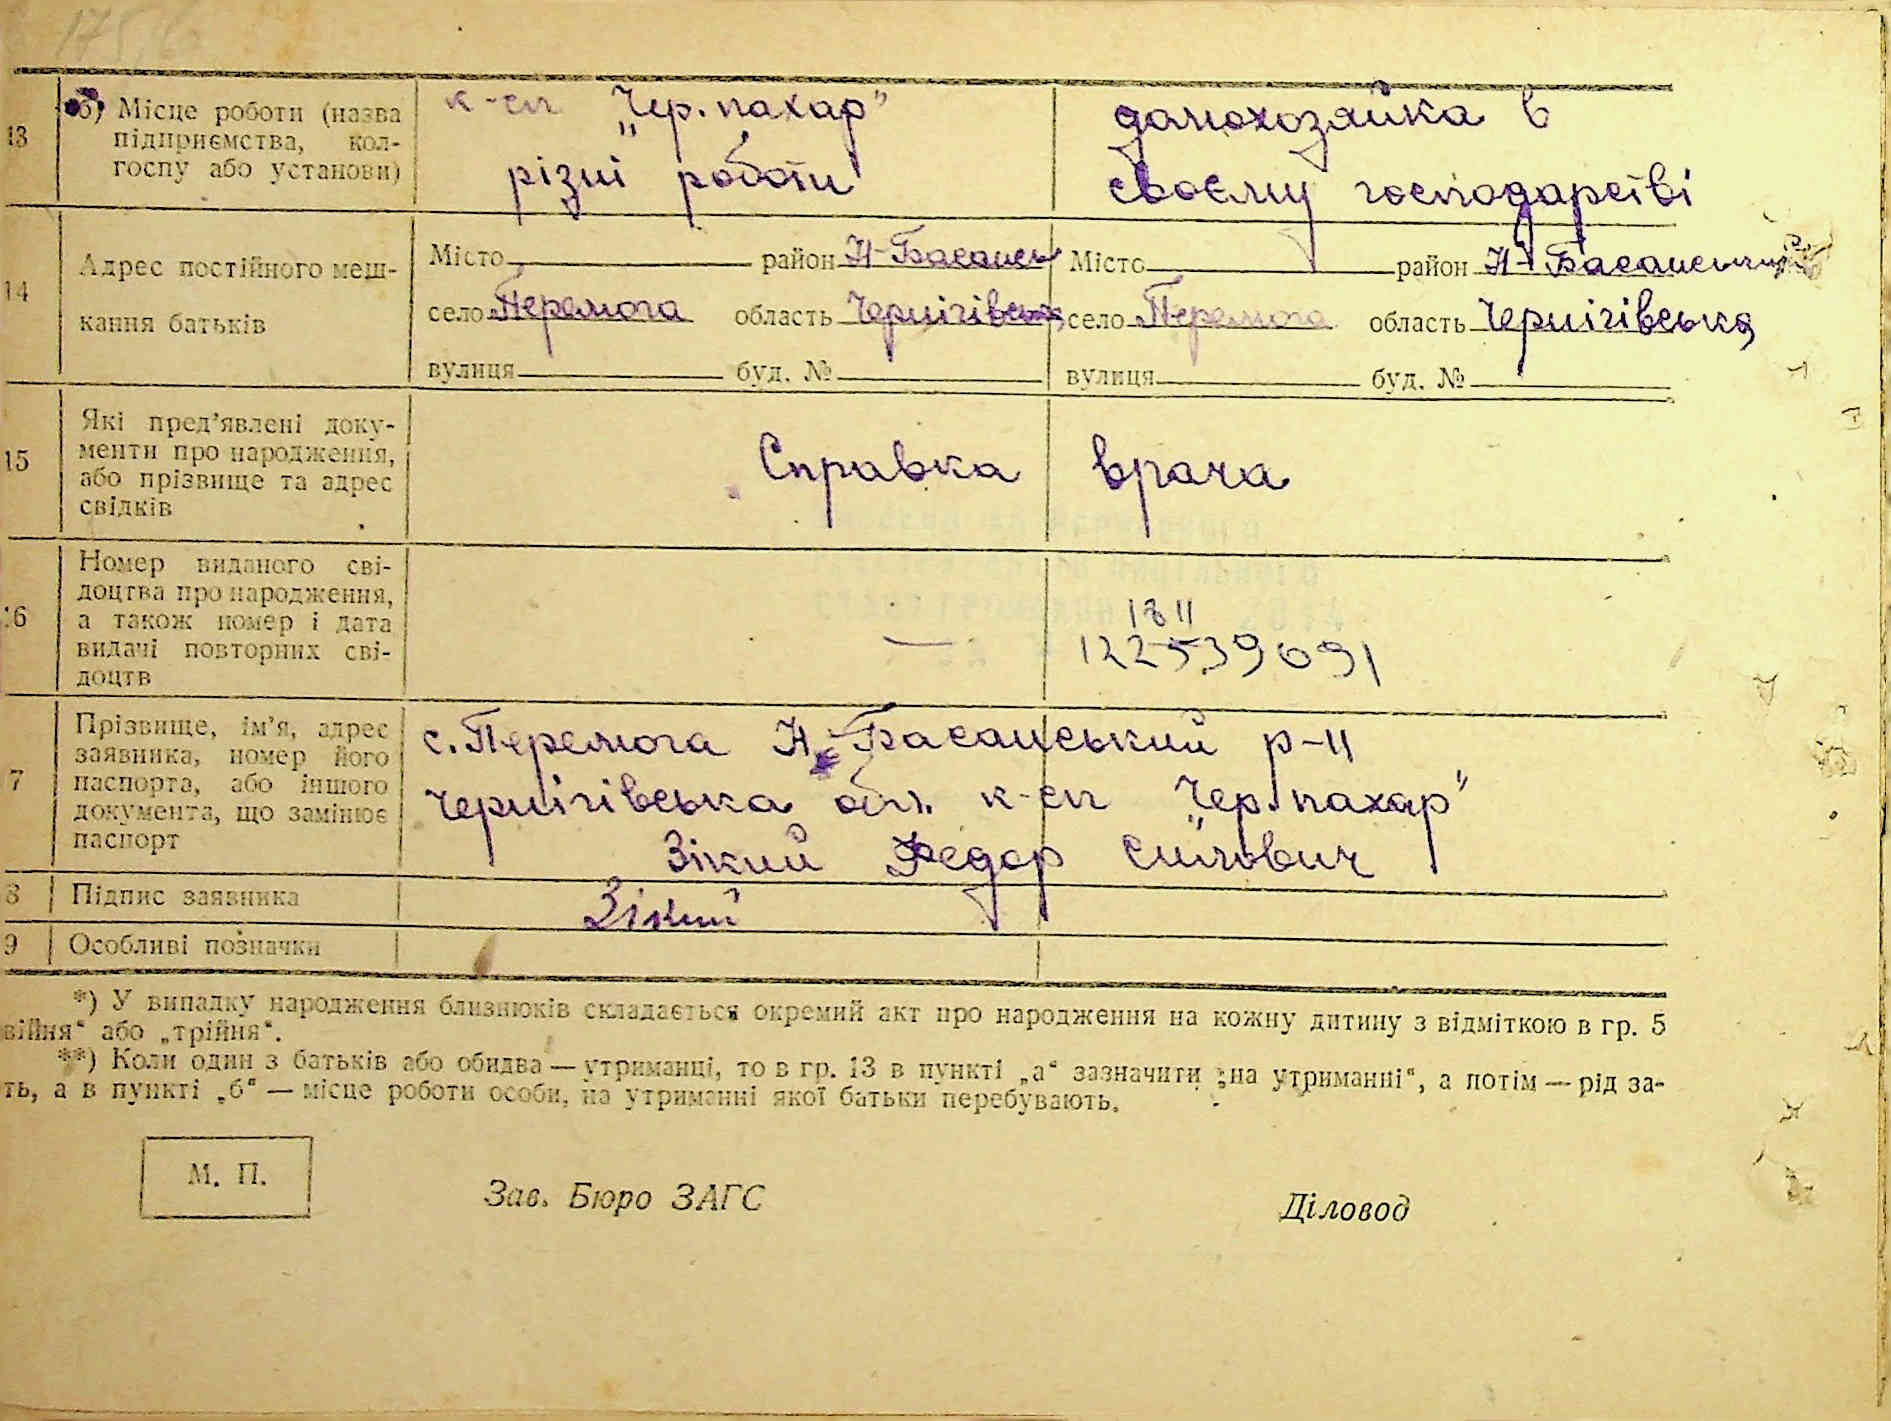 13
б) Місце роботи (назва
підприємства, кол-
госпу або установи)
к-сп „Чер. пахар"
різні роботи
домохозяйка в
своєму господарстві
14
Адрес постійного меш-
кання батьків
Місто район Н-Басансь
село Перемога область Чернігівська
вулиця буд. №
Місто район Н-Басанський
село Перемога область Чернігівська
вулиця буд. №
15
Які пред'явлені доку-
менти про народження,
або прізвище та адрес
свідків
Справка врача
16
Номер виданого сві-
доцтва про народження,
а також номер і дата
видачі повторних сві-
доцтв
—
18 11
122539091
7
Прізвище, ім'я, адрес
заявника, номер його
паспорта, або іншого
документа, що замінює
паспорт
с. Перемога Н-Басанський р-н
Чернігівська обл. к-сп „Чер. пахар"
Зікий Федор Силович
8
Підпис заявника
Зікий
9
Особливі позначки
*) У випадку народження близнюків складається окремий акт про народження на кожну дитину з відміткою в гр. 5
війня" або „трійня".
**) Коли один з батьків або обидва — утриманці, то в гр. 13 в пункті „а" зазначити „на утриманні", а потім — рід за-
ть, а в пункті „б" — місце роботи особи, на утриманні якої батьки перебувають.
М. П.
Зав. Бюро ЗАГС
Діловод